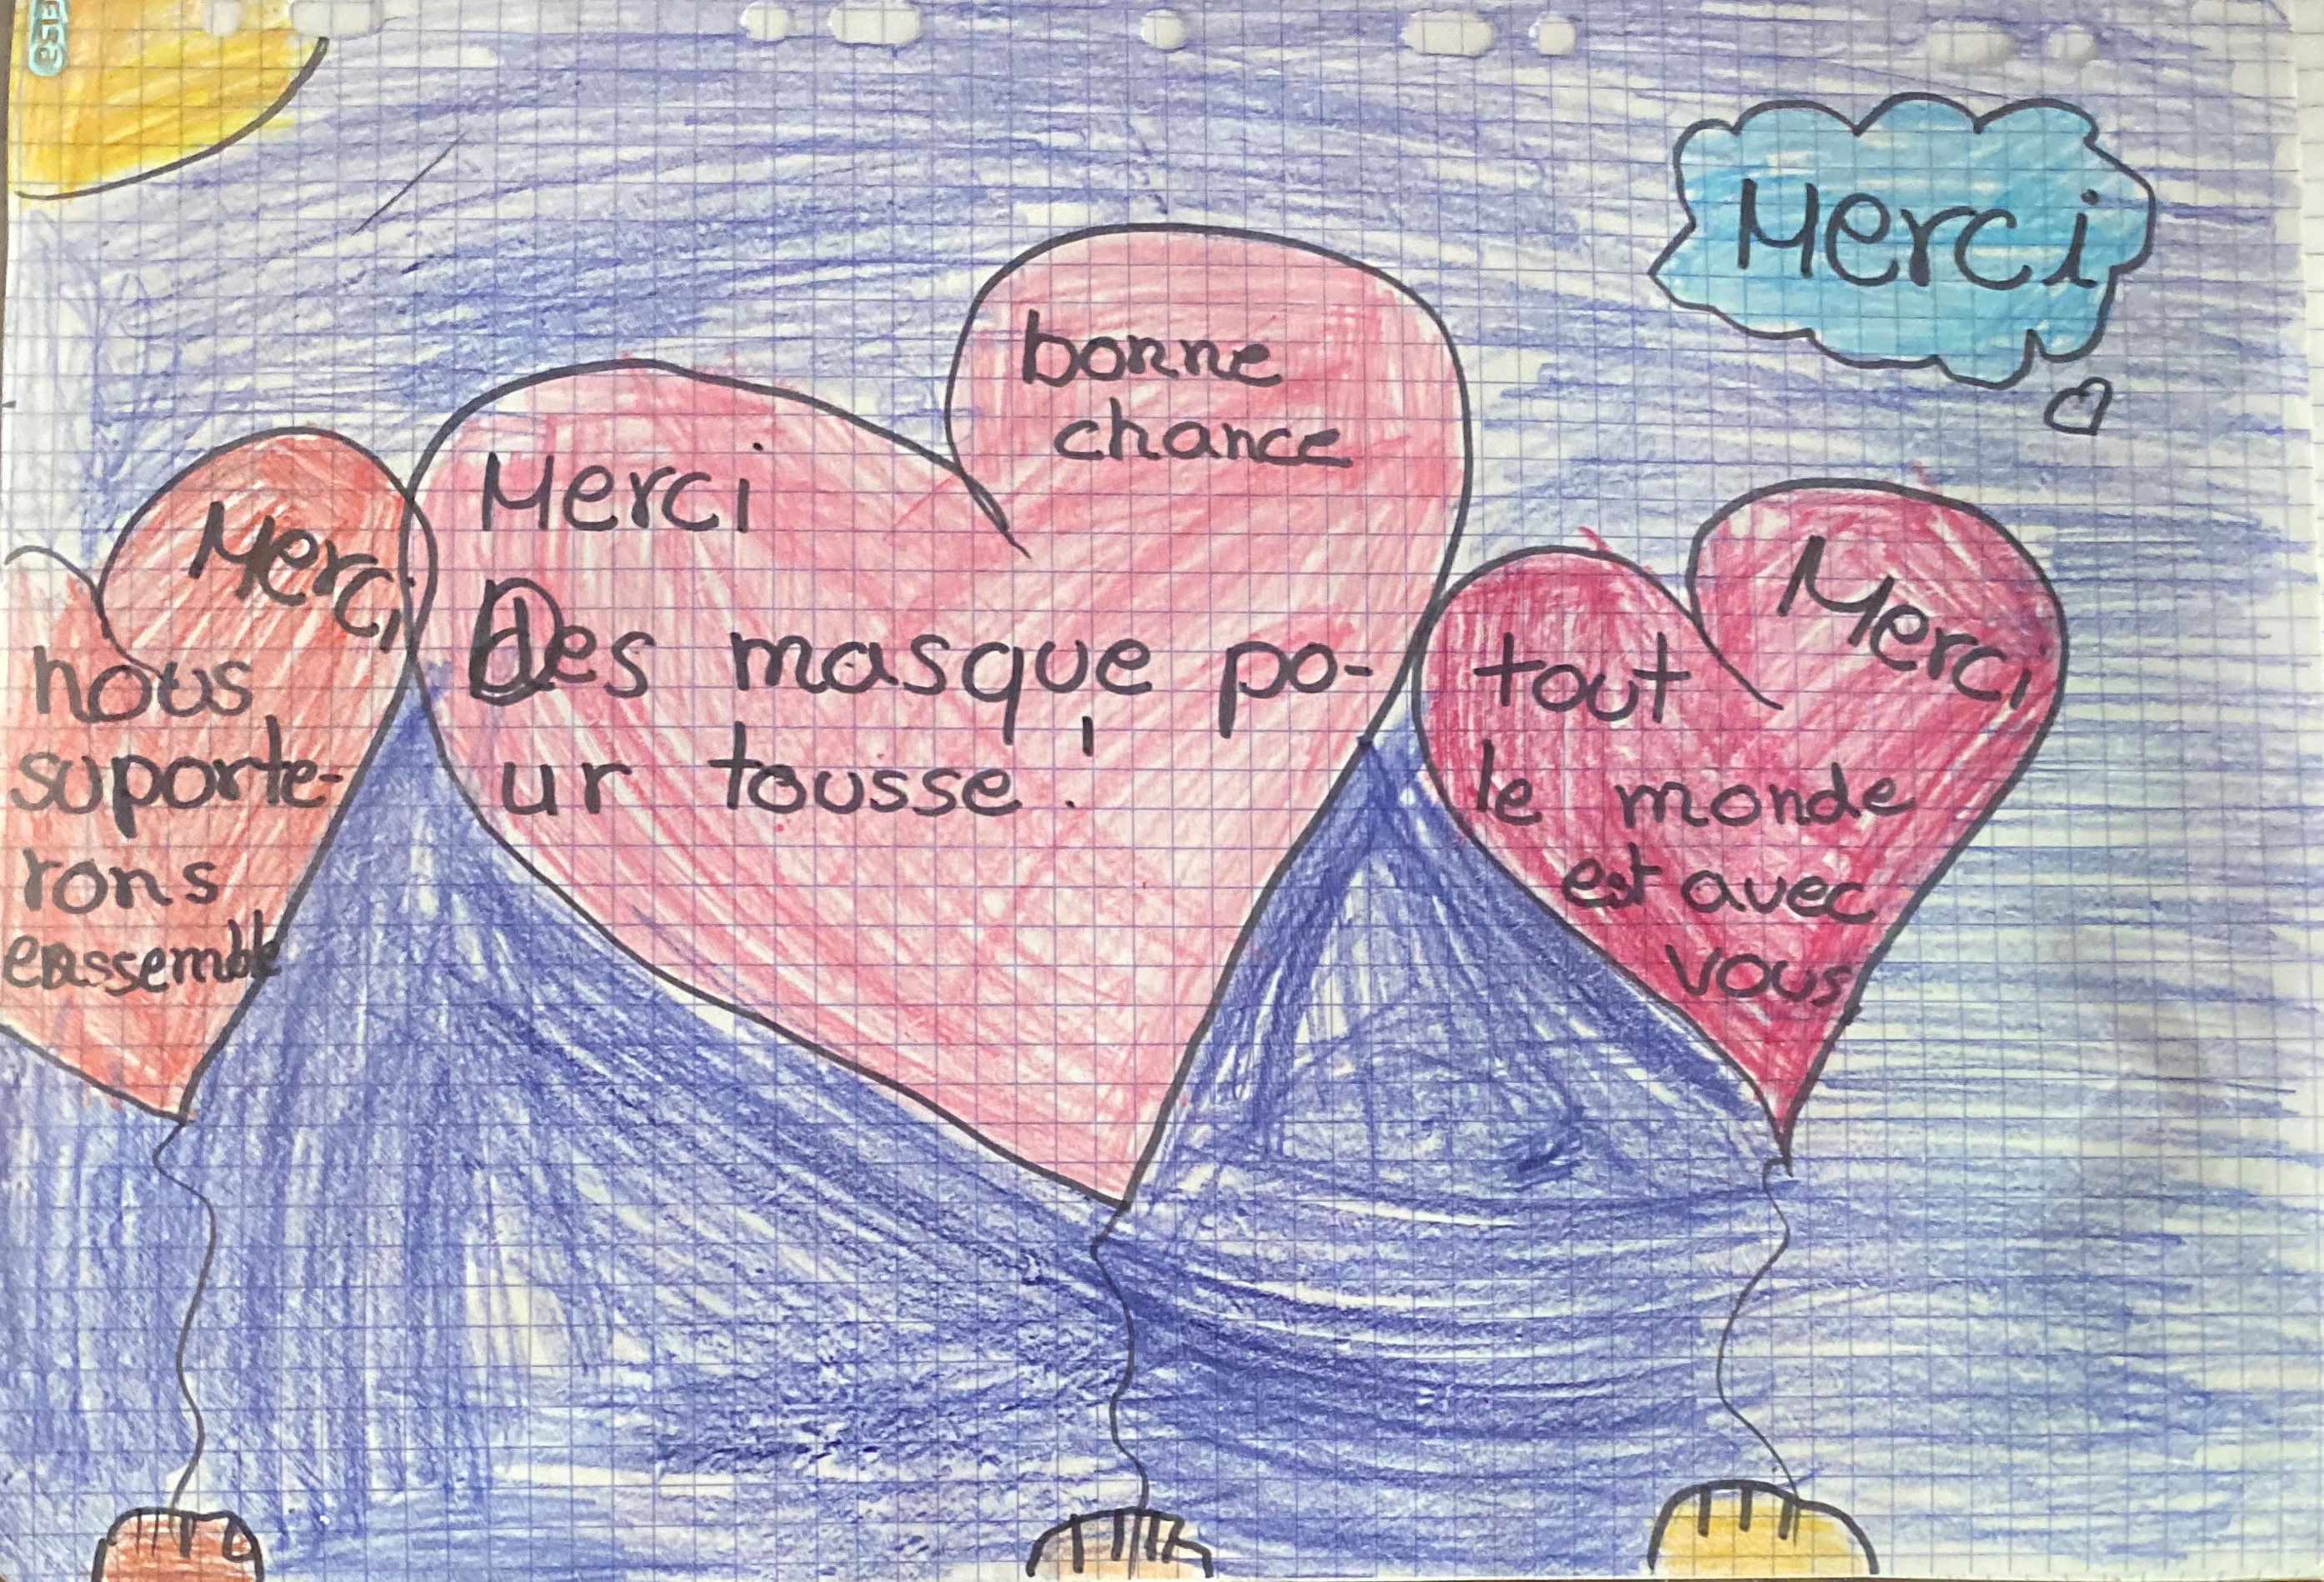 Merci
bonne
chance
Merci
Des masque po-
ur tousse!
Merci
nous
suporte-
rons
enssemble
Merci
tout
le monde
est avec
vous